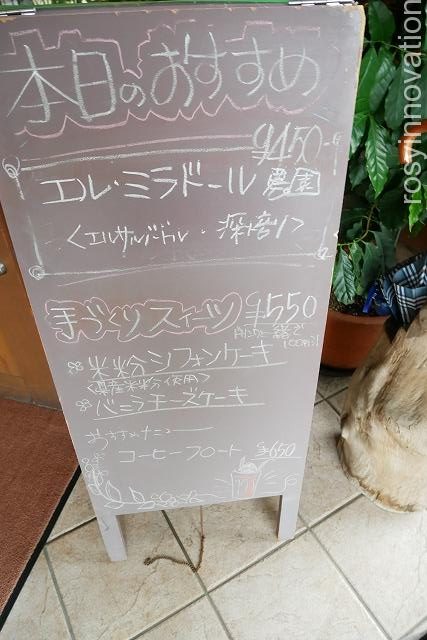 本日のおすすめ
¥450-
エル・ミラドール農園
<エルサルバドル・深煎り>
手づくりスイーツ ¥550
米粉シフォンケーキ
<県産米粉使用>
バニラチーズケーキ
おすすめメニュー
コーヒーフロート ¥650
rosyinnovation